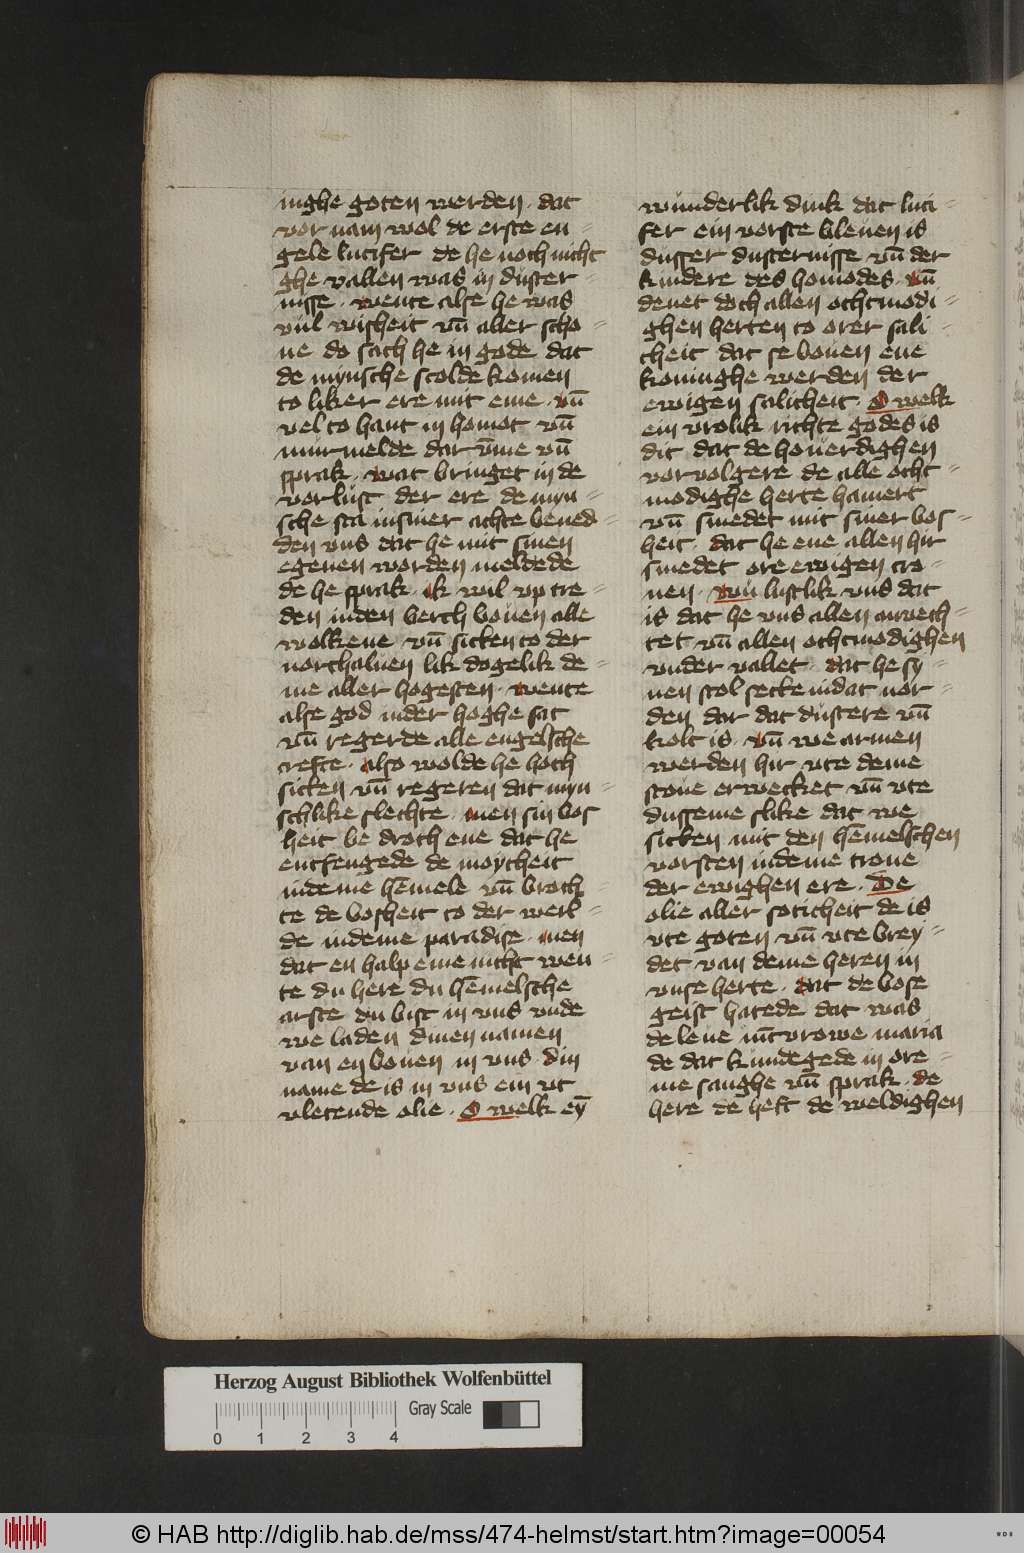 inghe goten werden · dat
vor nam wol de erste en=
gele lucifer de he noch nicht
ghe vallen was in duster=
nisse · wente alse he was
vul wisheit vn̄ aller scho=
ne do sach he in gode dat
de mynsche scolde komen
to liker ere mit eme · vn̄
vel to hant in homot vn̄
murmelde dar v̄me vn̄
sprak · wat bringet in de
vorlust der ere de myn=
sche sta in siner achte bened=
den vns dat he mit sinen
egenen worden meldede
de he sprak · ik wil vp tre=
den in den berch bouen alle
wolkene vn̄ sitten to der
northaluen lik dogelik de=
me aller hogesten · wente
alse god in der hoghe sat
vn̄ regerde alle engelsche
crefte · also wolde he hoch
sitten vn̄ regeren dat myn=
schlike slechte · men sin bos
heit be droch ene dat he
entfengede de moycheit
in deme hēmele vn̄ broch=
te de bosheit to der werl=
de in deme paradise · men
dat en halp eme nicht wen=
te du here du hēmelsche
arste du bist in vns vnde
we laden dinen namen
van en bouen in vns · din
name de is in vns ein vt
vletende olie · O welk eȳ
wunderlik dink dat luci=
fer ein vorste bleuen is
dusser dusternisse vn̄ der
kindere des homodes · vn̄
denet doch allen othmodi=
ghen herten to orer sali=
cheit dat se bouen ene
koninghe werden der
ewigen salicheit · O welk
ein vrolik richte godes is
dit dat de houerdighen
vorvolgere de alle otht=
modighe herte hamert
vn̄ smedet mit siner bos=
heit · dat he ene allen hir
smedet ore ewigen cro=
nen · wu lustlik vns dat
is dat he vns allen anvech=
tet vn̄ allen othtmodighen
vnder vallet · dat he sy=
nen stol sette in dat nor=
den dar dat dustere vn̄
kolt is · vn̄ we armen
werden hir vte deme
stoue erwecket vn̄ vte
dusseme slike dat we
sitten mit den hēmelschen
vorsten in deme trone
der ewighen ere · De
olie aller soticheit de is
vte goten vn̄ vte brey=
det van deme heren in
vnse herte · dat de bose
geist hatede dat was
de leue iūcvrowe maria
de dat kundegede in ore=
me sanghe vn̄ sprak · de
here de heft de weldighen
Herzog August Bibliothek Wolfenbüttel
Gray Scale
0 1 2 3 4
© HAB http://diglib.hab.de/mss/474-helmst/start.htm?image=00054